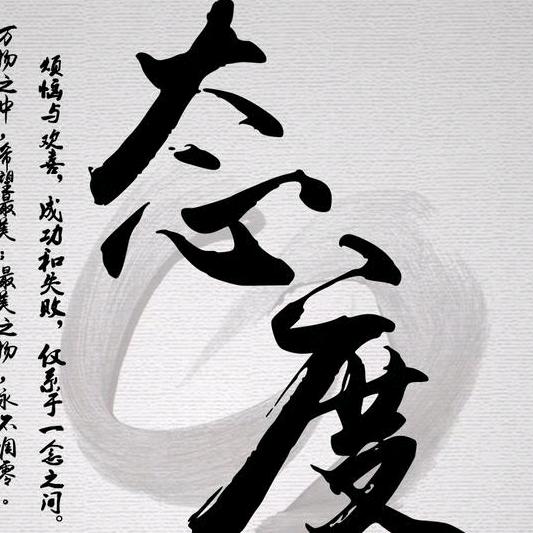 态度
烦恼与欢喜，成功和失败，仅系于一念之间。
万物之中，希望最美；最美之物，永不凋零。